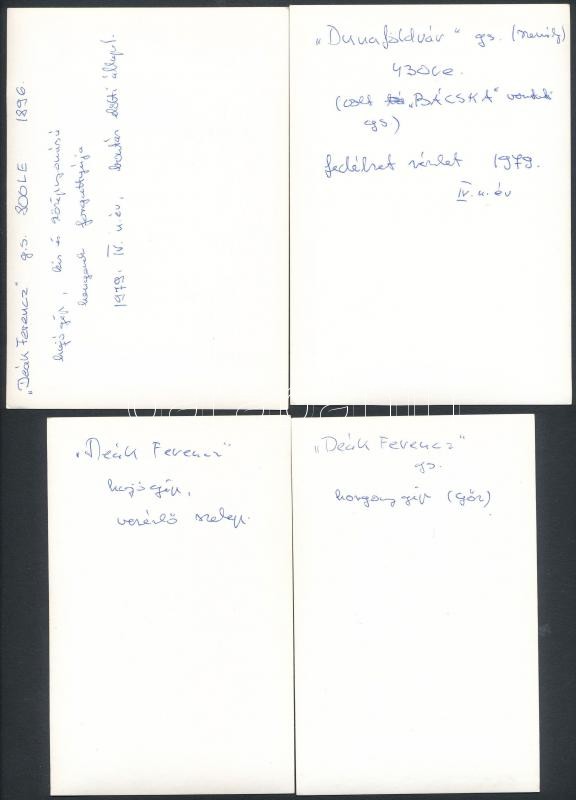 „Deák Ferencz" g.s. 800LE 1896.
hajógép, kis és középnyomású
hengerek forgattyúja
1979. IV. n. év, bontás előtti állapot.
„Dunaföldvár" gs. (személy)
430LE.
(volt „BÁCSKA" vontató
gs)
fedélzet részlet 1979.
IV. n. év
„Deák Ferencz"
hajógép,
vezérlő szelep.
„Deák Ferencz"
gs.
horgonygép (gőz)